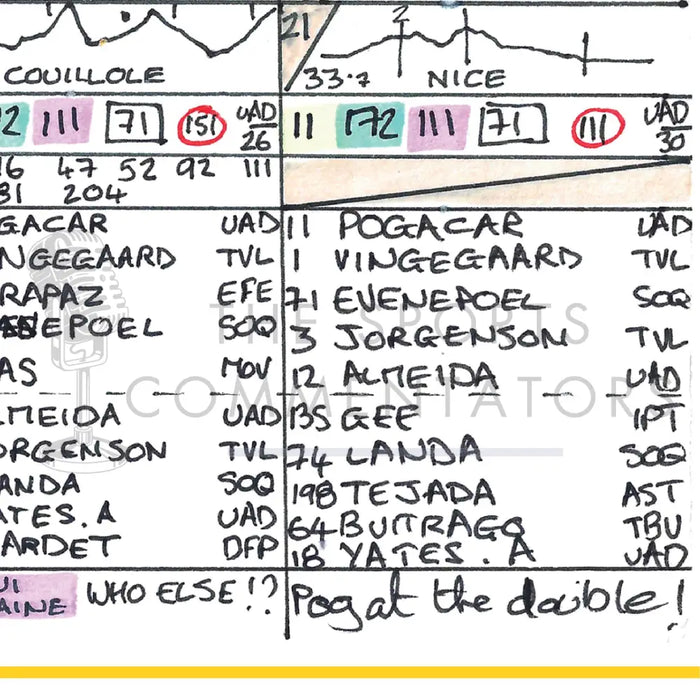 COUILLOLE
2 111 71 151 UAD 26
16 47 52 92 111
81 204
GACAR UAD
NGEGAARD TVL
RAPAZ EFE
EPOEL SOQ
AS MOV
LMEIDA UAD
ORGENSON TVL
ANDA SOQ
ATES.A UAD
ARDET DFP
UI
AINE
WHO ELSE!?
21
2
33.7 NICE
11 172 111 71 111 UAD 30
11 POGACAR UAD
1 VINGEGAARD TVL
71 EVENEPOEL SOQ
3 JORGENSON TVL
12 ALMEIDA UAD
135 GEE IPT
74 LANDA SOQ
198 TEJADA AST
64 BUITRAGO TBV
18 YATES.A UAD
Pog at the double!
THE SPORTS
COMMENTATORS